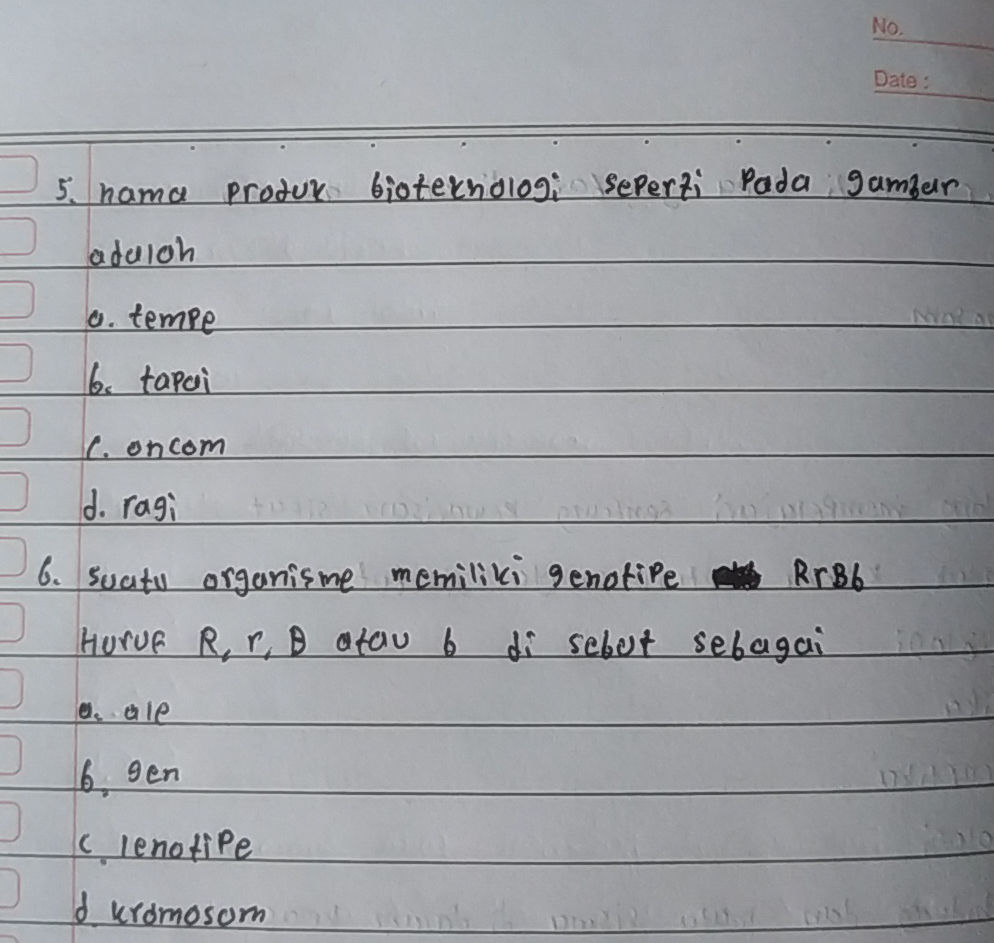 No.
Date :
5. nama produk bioteknologi seperti pada gambar
adalah
a. tempe
b. tapai
c. oncom
d. ragi
6. suatu organisme memiliki genotipe RrBb
Huruf R, r, B atau b di sebut sebagai
a. alp
b. gen
c. lenotipe
d kromosom